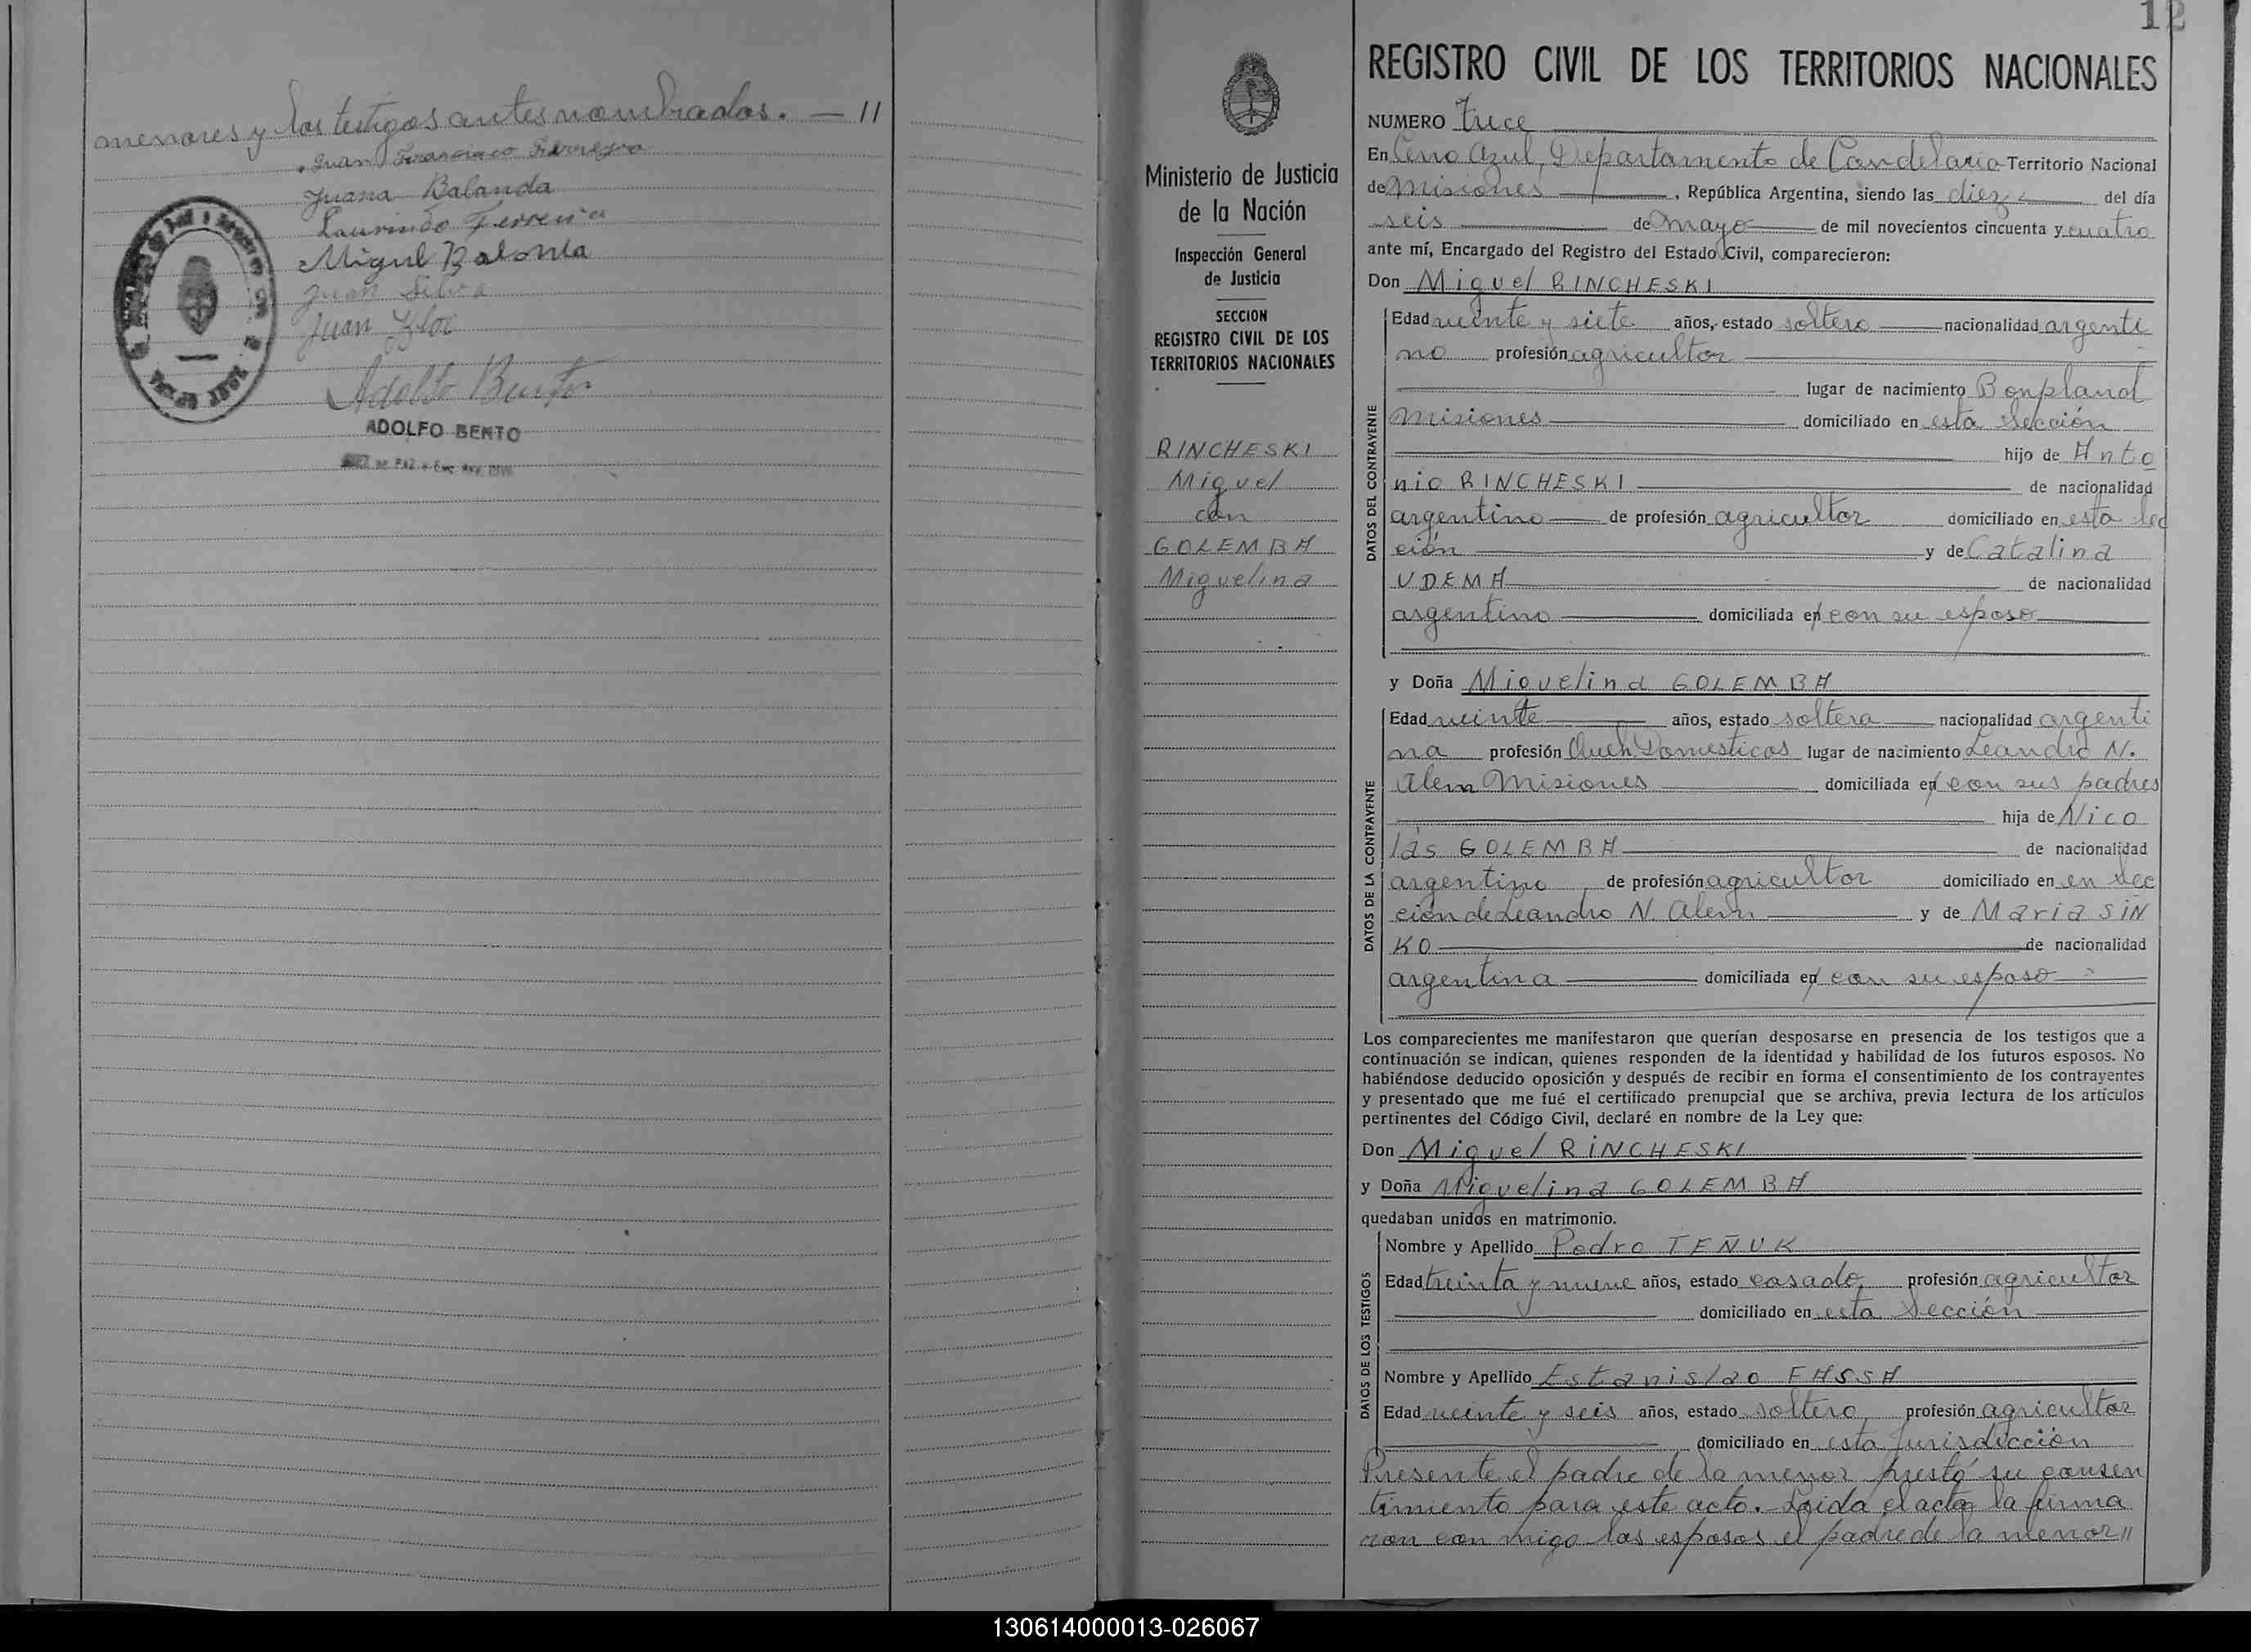 menores y los testigos antes nombrados. — 11
Juan Francisco
Juana Balanda
Laurindo Ferreira
Miguel Balonda
Juan Silva
Juan
Adolfo Bento
ADOLFO BENTO
JUEZ DE PAZ
12
REGISTRO CIVIL DE LOS TERRITORIOS NACIONALES
Ministerio de Justicia
de la Nación
Inspección General
de Justicia
SECCION
REGISTRO CIVIL DE LOS
TERRITORIOS NACIONALES
RINCHESKI
Miguel
con
GOLEMBA
Miguelina
NUMERO trece
En Cerro Azul, Departamento de Candelaria Territorio Nacional
de Misiones, República Argentina, siendo las diez del día
seis de mayo de mil novecientos cincuenta y cuatro
ante mí, Encargado del Registro del Estado Civil, comparecieron:
Don Miguel RINCHESKI
DATOS DEL CONTRAYENTE
Edad veinte y siete años, estado soltero nacionalidad argenti
no profesión agricultor
lugar de nacimiento Bonpland
Misiones domiciliado en esta sección
hijo de Anto
nio RINCHESKI de nacionalidad
argentino de profesión agricultor domiciliado en esta sec
ción y de Catalina
UDEMA de nacionalidad
argentina domiciliada en/ con su esposo
y Doña Miguelina GOLEMBA
DATOS DE LA CONTRAYENTE
Edad veinte años, estado soltera nacionalidad argenti
na profesión Queh Domesticos lugar de nacimiento Leandro N.
Alem Misiones domiciliada en/ con sus padres
hija de Nico
lás GOLEMBA de nacionalidad
argentino de profesión agricultor domiciliado en en sec
ción de Leandro N. Alem y de Maria SIN
KO de nacionalidad
argentina domiciliada en/ con su esposo
Los comparecientes me manifestaron que querían desposarse en presencia de los testigos que a
continuación se indican, quienes responden de la identidad y habilidad de los futuros esposos. No
habiéndose deducido oposición y después de recibir en forma el consentimiento de los contrayentes
y presentado que me fué el certificado prenupcial que se archiva, previa lectura de los artículos
pertinentes del Código Civil, declaré en nombre de la Ley que:
Don Miguel RINCHESKI
y Doña Miguelina GOLEMBA
quedaban unidos en matrimonio.
DATOS DE LOS TESTIGOS
Nombre y Apellido Pedro TEÑUK
Edad treinta y nueve años, estado casado, profesión agricultor
domiciliado en esta Sección
Nombre y Apellido Estanislao FASSA
Edad veinte y seis años, estado soltero, profesión agricultor
domiciliado en esta Jurisdicción
Presente el padre de la menor prestó su consen
timiento para este acto. Leida el acta la firma
ron con migo los esposos el padre de la menor 11
130614000013-026067